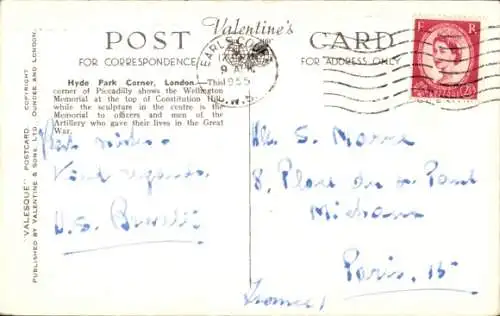 POST
Valentine's
CARD
FOR CORRESPONDENCE
FOR ADDRESS ONLY
Hyde Park Corner, London.—This
corner of Piccadilly shows the Wellington
Memorial at the top of Constitution Hill,
while the sculpture in the centre is the
Memorial to officers and men of the
Artillery who gave their lives in the Great
War.
"VALESQUE" POSTCARD. COPYRIGHT
PUBLISHED BY VALENTINE & SONS, LTD. DUNDEE AND LONDON.
EARLS CO
9 AM
1955
S.W.5
E R
Best wishes
Kind regards
S.
8, Place du
Paris. 15
(France)